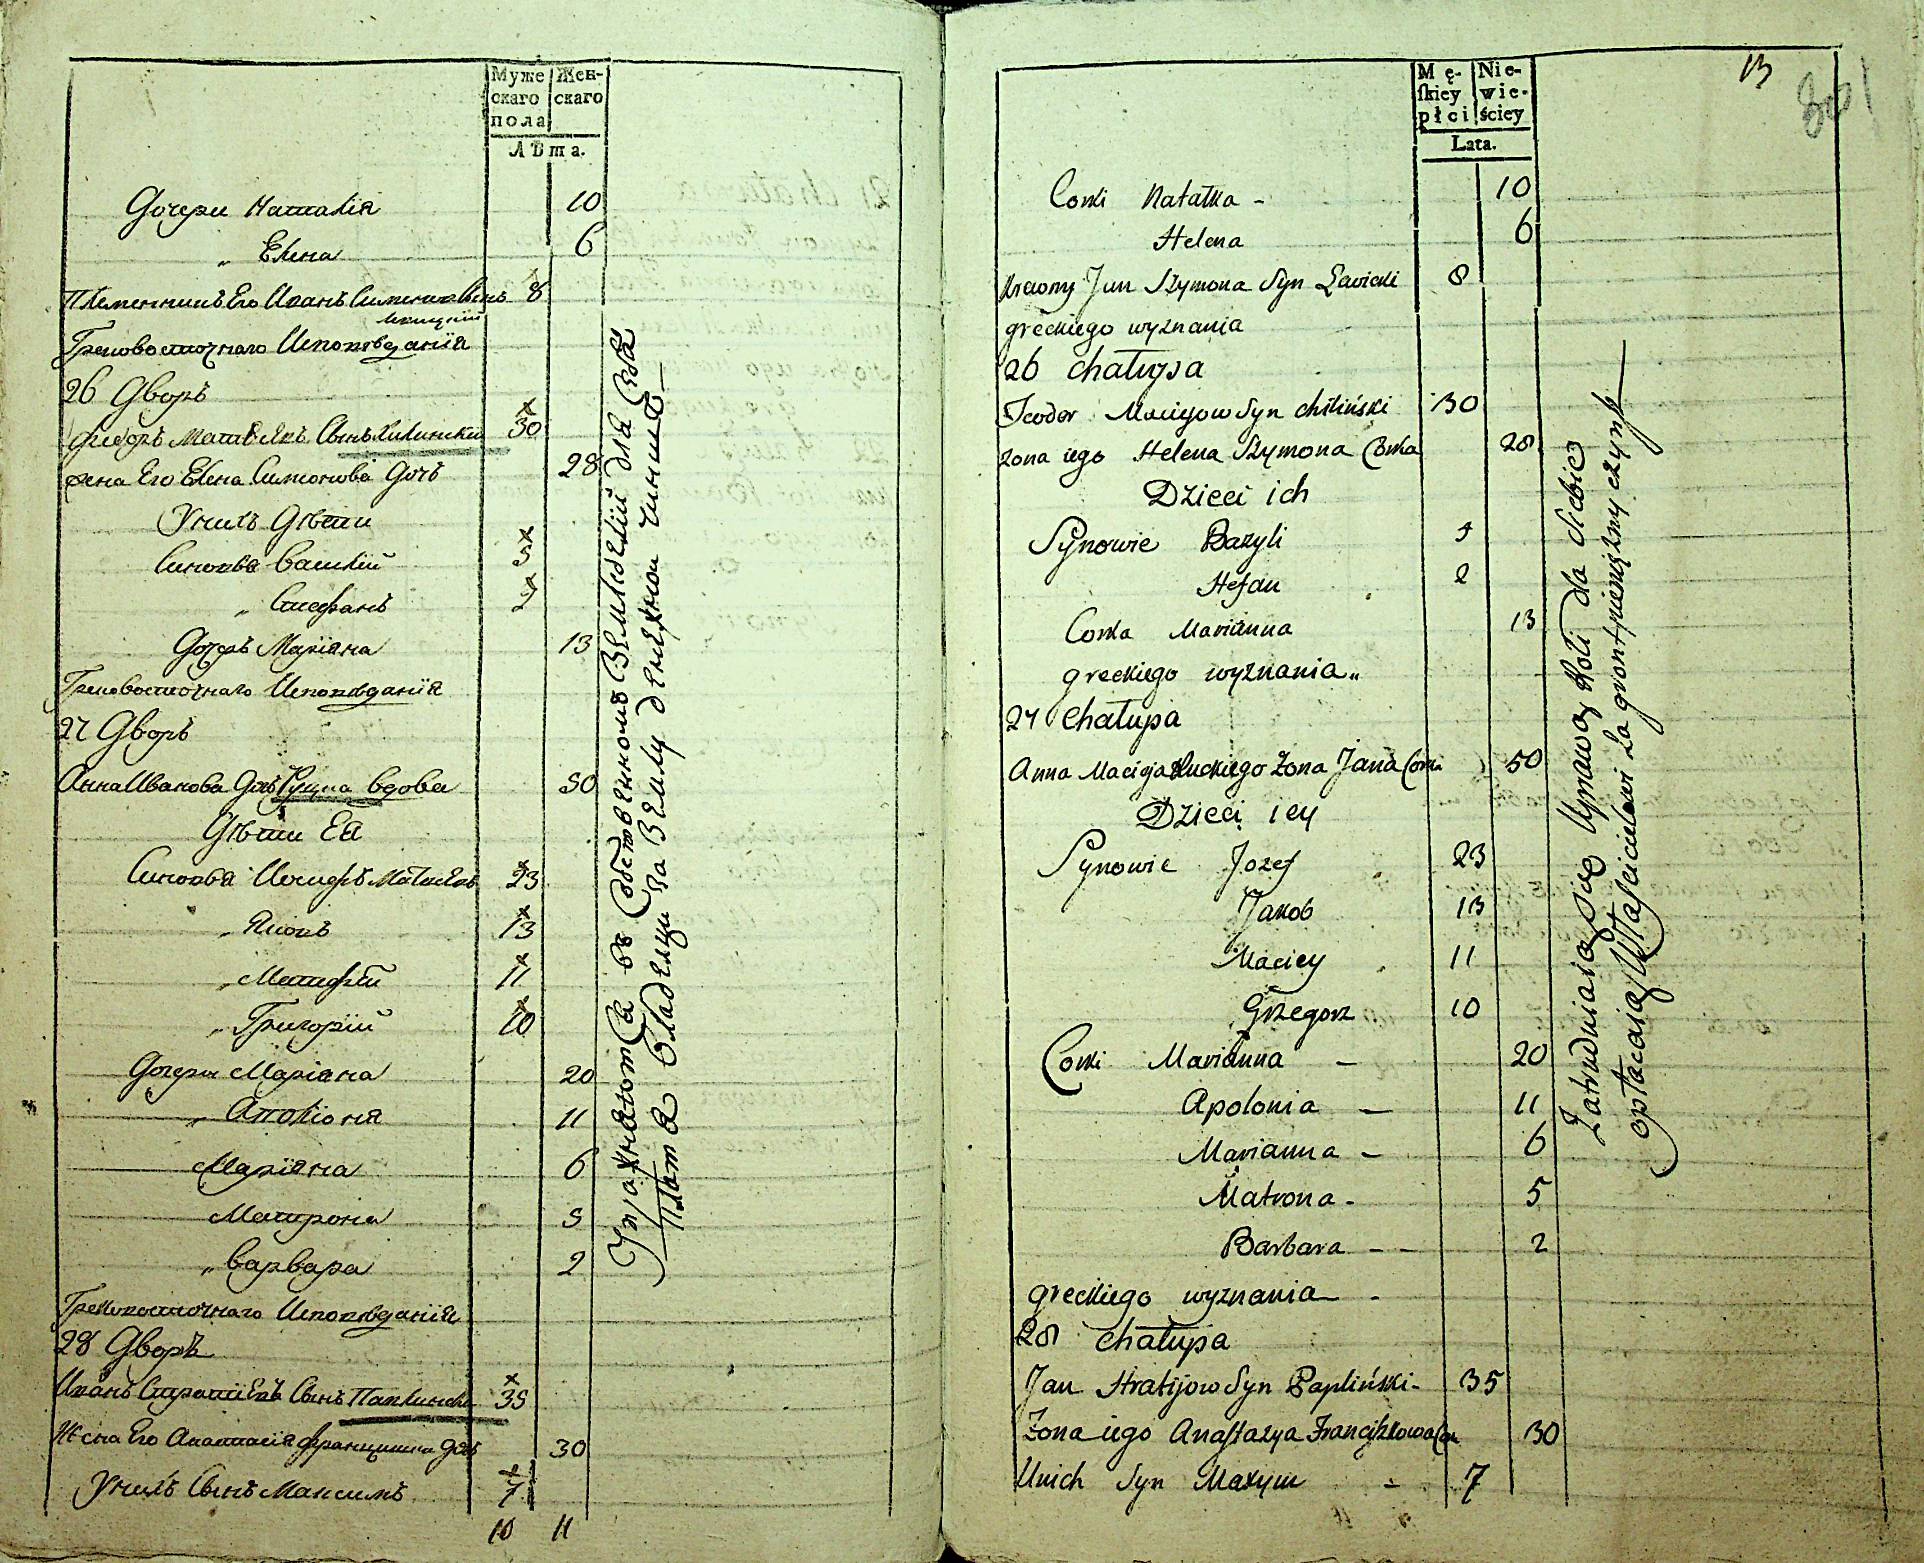 Муже Жен-
скаго скаго
пола
Лѣта.
Дочери Наталія 10
„ Елена 6
Племенникъ Его Иванъ Симоновъ Сынъ 8
Грековосточнаго Исповѣданія
26 Дворъ
Федоръ Матвѣевъ Сынъ Хилински 30
жена Его Елена Симонова Дочь 28
У нихъ Дѣти
Сыновья Василій 5
„ Стефанъ 2
Дочерь Маріяна 13
Грековосточнаго Исповѣданія
27 Дворъ
Анна Иванова Дочь вдова 50
Дѣти Ея
Сыновья Іосифъ Матвѣевъ 23
„ Яковъ 13
„ Матфѣй 11
„ Григорій 10
Дочери Маріана 20
„ Аполіонія 11
Маріяна 6
Матрона 5
„ Варвара 2
Грековосточнаго Исповѣданія
28 Дворъ
Иванъ Стратіевъ Сынъ Паплински 35
Жена Его Анастасія Францишкова Дочь 30
У нихъ Сынъ Максимъ 7
10 11
Упражняются въ Собственномъ Земледеліи для Себя
Платя Владелцу за Землю денежной чиншъ
13
801
Mę- Nie-
ſkiey wie-
płci ściey
Lata.
Corki Natałka - 10
Helena 6
Krewny Jan Szymona Syn Lawicki 8
greckiego wyznania
26 chałupa
Teodor Macieyow Syn chiliński 30
zona iego Helena Szymona Corka 28
Dzieci ich
Synowie Bazyli 5
Stefan 2
Corka Marianna 13
greckiego wyznania„
27 Chałupa
Anna Macieja Zona Jana Corka 50
Dzieci iey
Synowie Jozef 23
Jakob 13
Maciey 11
Grzegorz 10
Corki Marianna - 20
Apolonia - 11
Marianna - 6
Matrona - 5
Barbara - - 2
greckiego wyznania - -
28 chałupa
Jan Stratijow Syn Papliński - 35
Zona iego Anastazya Franciszkowa Cor 30
U nich Syn Maxym - 7
Zatrudniaią się Uprawą Roli dla siebie
opłacaią Właścicielowi za gront pieniężny czynsz